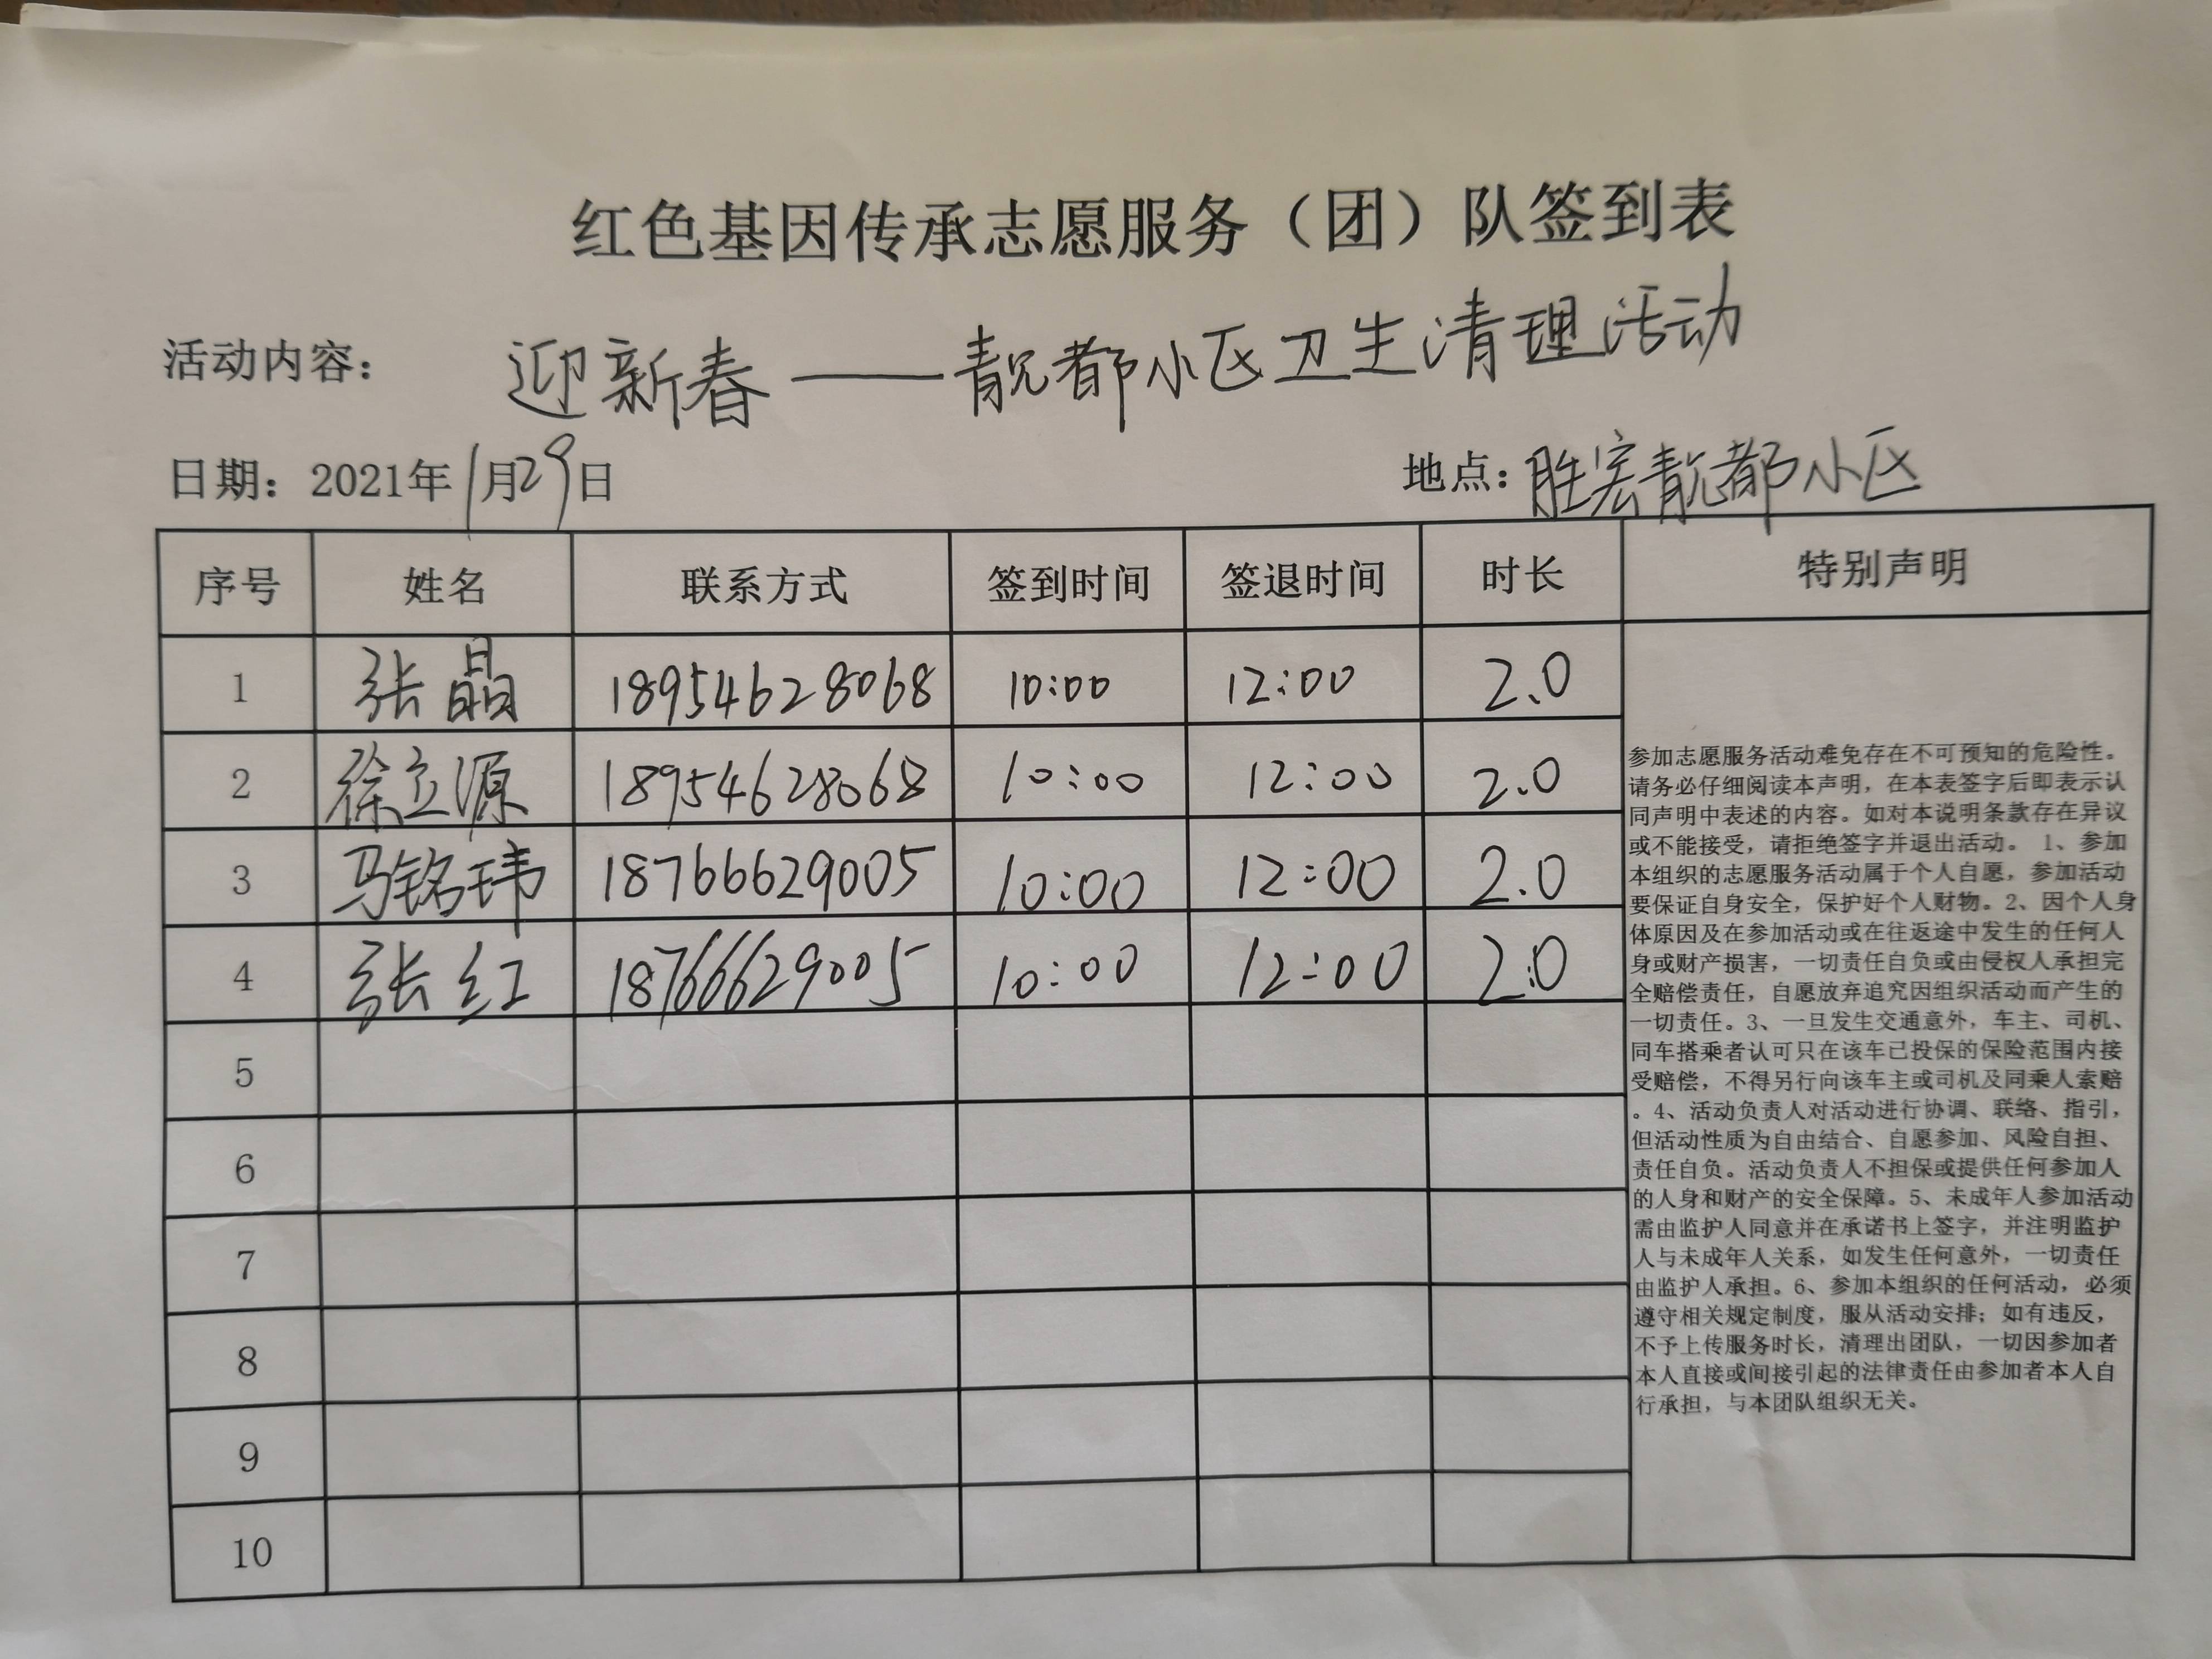 红色基因传承志愿服务（团）队签到表
活动内容： 迎新春——靓都小区卫生清理活动
日期：2021年1月29日 地点：胜宏靓都小区
序号 姓名 联系方式 签到时间 签退时间 时长 特别声明
1 张晶 18954628068 10:00 12:00 2.0
2 徐立源 18954628068 10:00 12:00 2.0
3 马铭玮 18766629005 10:00 12:00 2.0
4 张红 18766629005 10:00 12:00 2.0
5
6
7
8
9
10
参加志愿服务活动难免存在不可预知的危险性。
请务必仔细阅读本声明，在本表签字后即表示认
同声明中表述的内容。如对本说明条款存在异议
或不能接受，请拒绝签字并退出活动。 1、参加
本组织的志愿服务活动属于个人自愿，参加活动
要保证自身安全，保护好个人财物。2、因个人身
体原因及在参加活动或在往返途中发生的任何人
身或财产损害，一切责任自负或由侵权人承担完
全赔偿责任，自愿放弃追究因组织活动而产生的
一切责任。3、一旦发生交通意外，车主、司机、
同车搭乘者认可只在该车已投保的保险范围内接
受赔偿，不得另行向该车主或司机及同乘人索赔
。4、活动负责人对活动进行协调、联络、指引，
但活动性质为自由结合、自愿参加、风险自担、
责任自负。活动负责人不担保或提供任何参加人
的人身和财产的安全保障。5、未成年人参加活动
需由监护人同意并在承诺书上签字，并注明监护
人与未成年人关系，如发生任何意外，一切责任
由监护人承担。6、参加本组织的任何活动，必须
遵守相关规定制度，服从活动安排；如有违反，
不予上传服务时长，清理出团队，一切因参加者
本人直接或间接引起的法律责任由参加者本人自
行承担，与本团队组织无关。